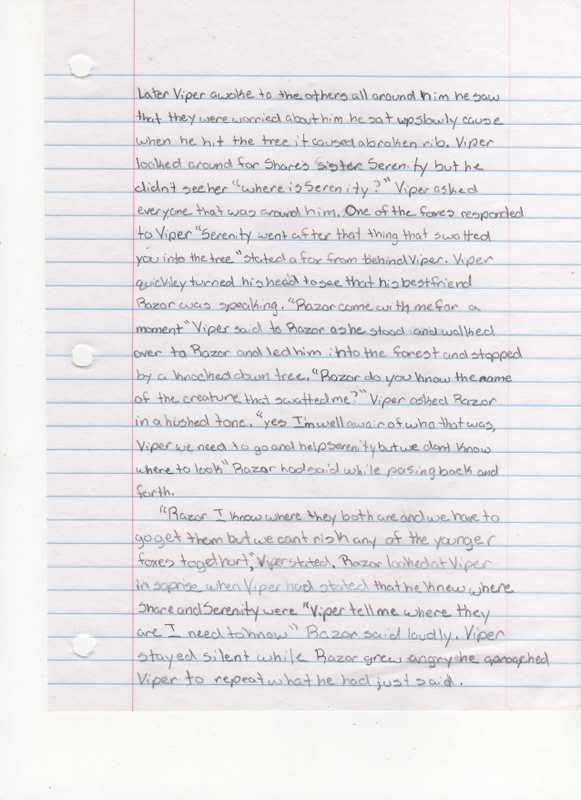 Later Viper awoke to the others all around him he saw
that they were worried about him he sat up slowly cause
when he hit the tree it caused a broken rib. Viper
looked around for Share's sister Serenity but he
didn't see her "where is Serenity?" Viper asked
everyone that was around him. One of the foxes responded
to Viper "Serenity went after that thing that swatted
you into the tree" stated a fox from behind Viper. Viper
quickiley turned his head to see that his best friend
Razor was speaking. "Razor come with me for a
moment" Viper said to Razor as he stood and walked
over to Razor and led him into the forest and stopped
by a knocked down tree. "Razor do you know the name
of the creature that swatted me?" Viper asked Razor
in a hushed tone. "yes I'm well awair of who that was,
Viper we need to go and help serenity but we dont know
where to look" Razor had said while pasing back and
forth.
"Razor I know where they both are and we have to
go get them but we cant risk any of the younger
foxes to get hurt," Viper stated. Razor looked at Viper
in saprise when Viper had stated that he knew where
Share and Serenity were "Viper tell me where they
are I need to know" Razor said loudly. Viper
stayed silent while Razor grew angry he aproached
Viper to repeat what he had just said.